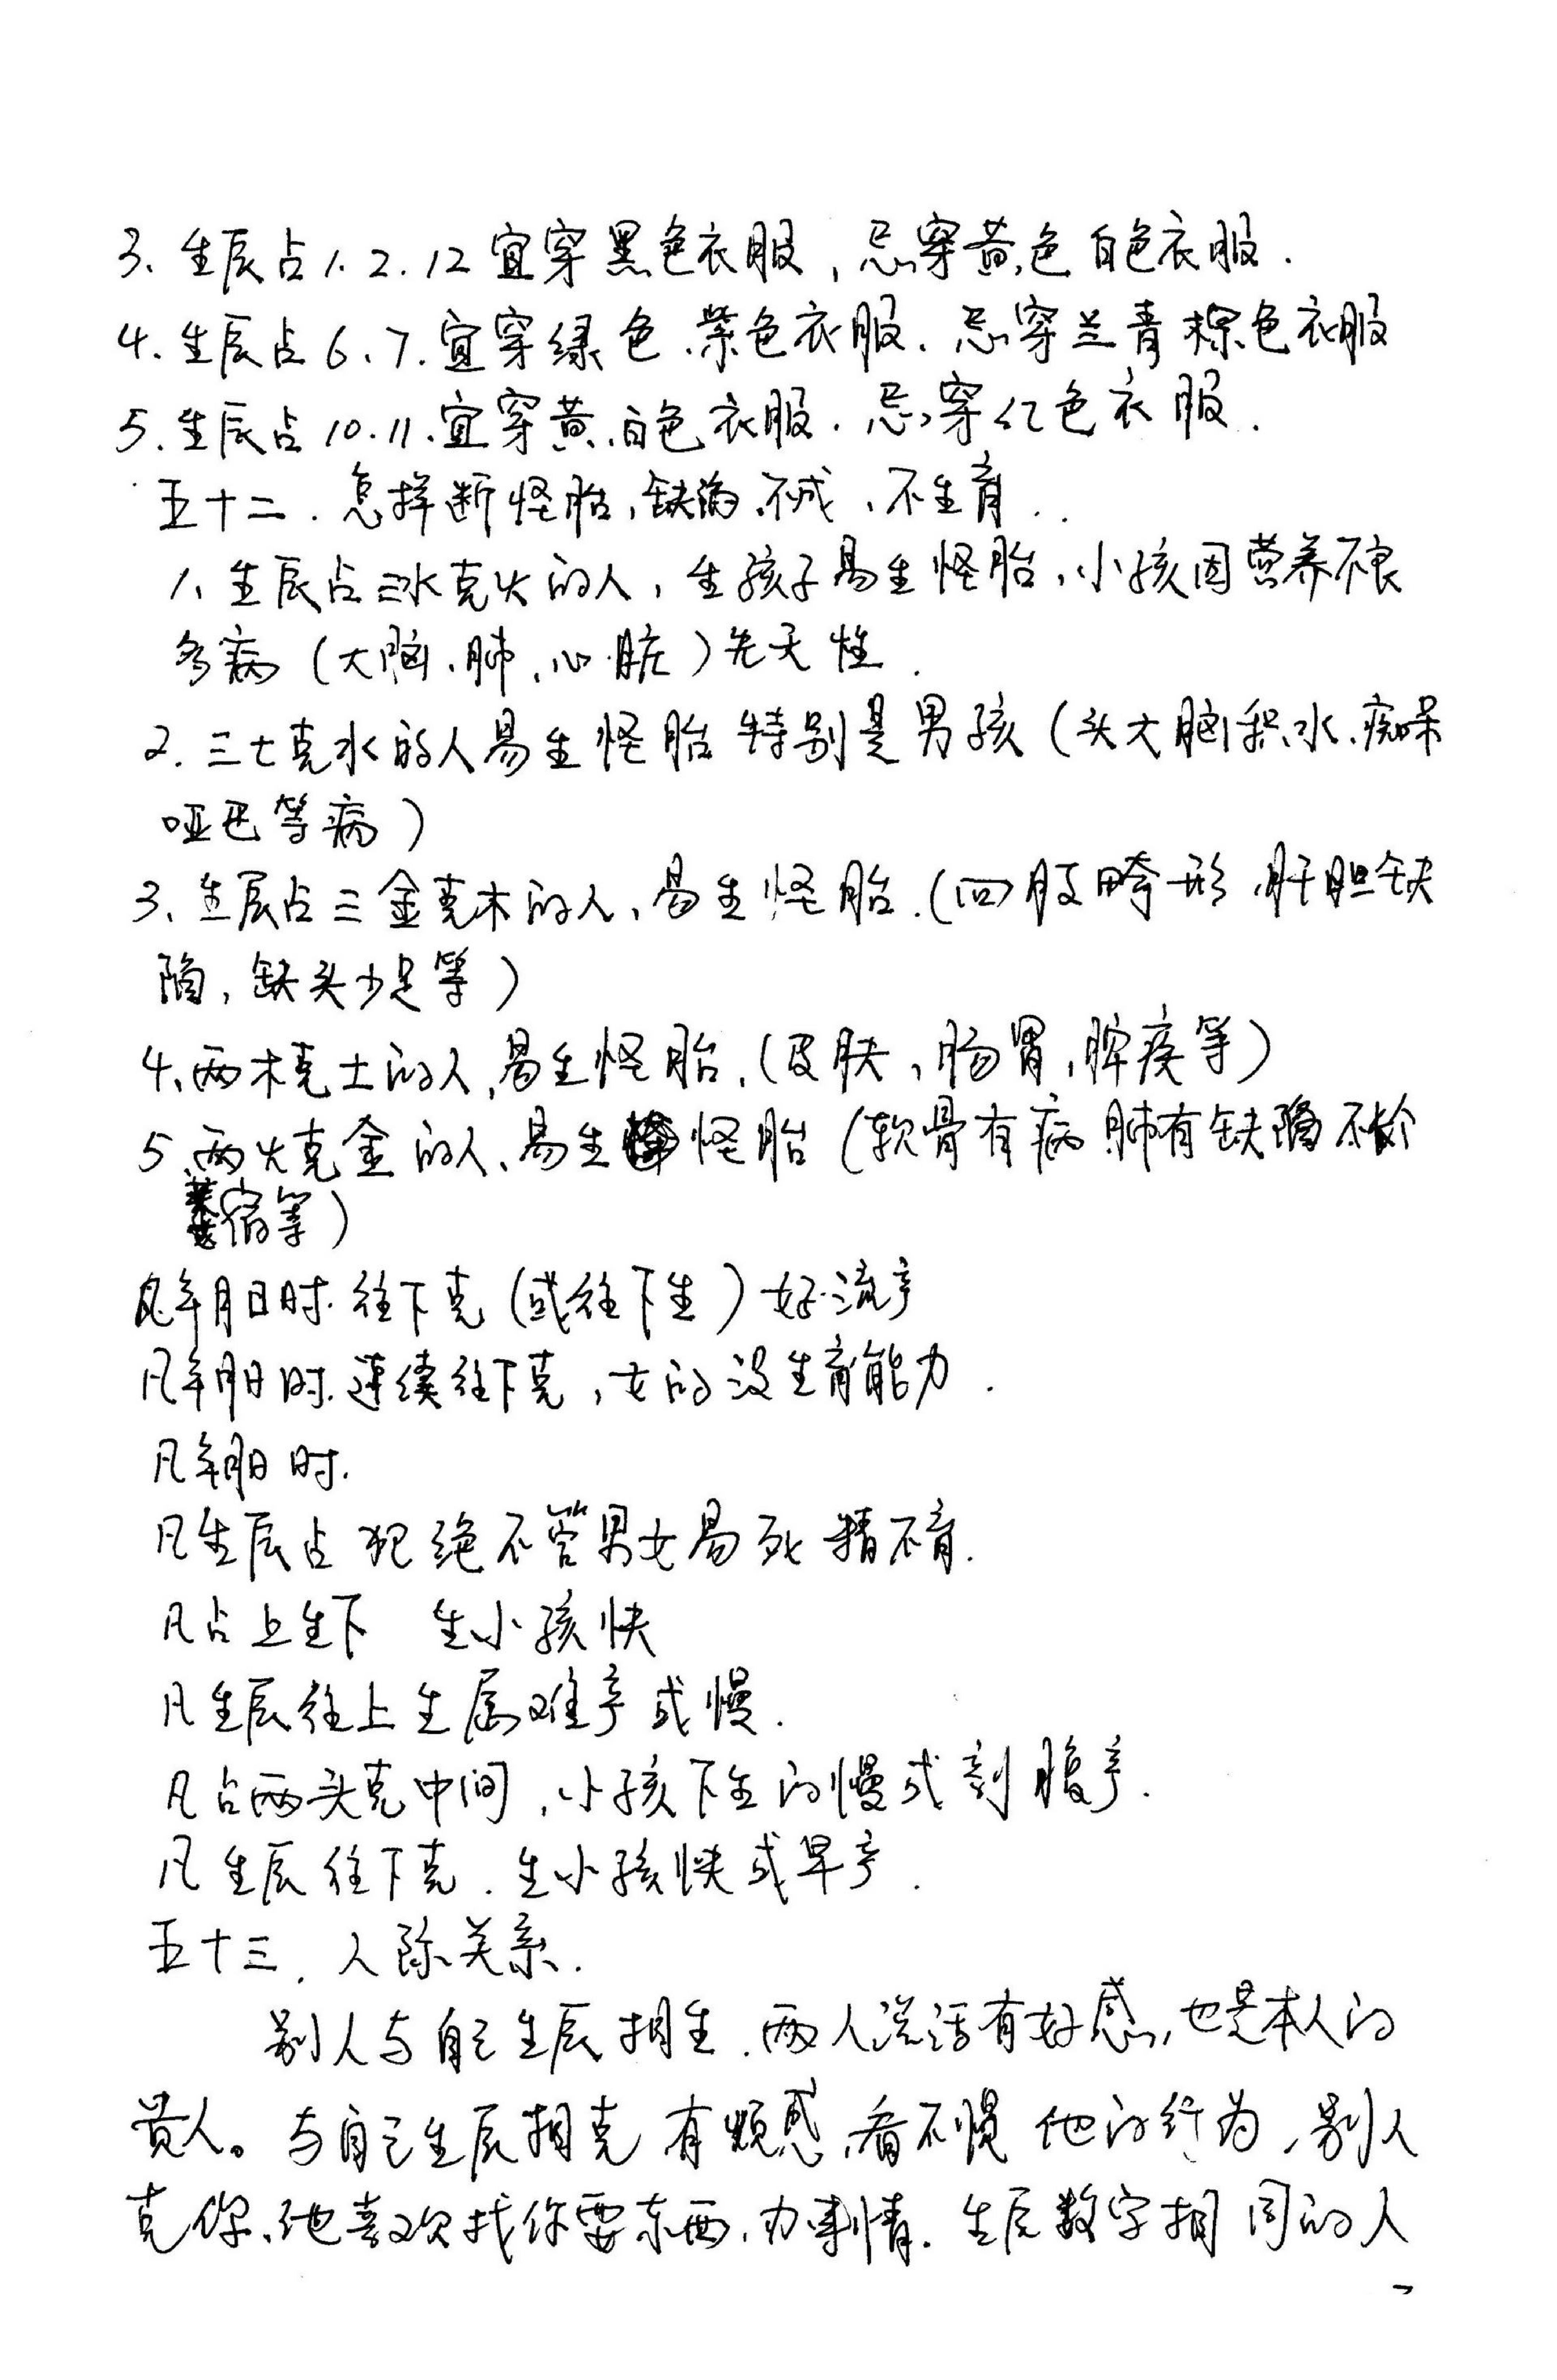 3、生辰占1.2.12宜穿黑色衣服,忌穿黄色白色衣服.
4、生辰占6、7.宜穿绿色.紫色衣服.忌穿兰青棕色衣服
5.生辰占10.11.宜穿黄、白色衣服.忌穿红色衣服.
五十二.怎样断怪胎,缺陷.不成、不生育.
1、生辰占三水克火的人,生孩子易生怪胎,小孩因营养不良
多病(大脑、肺、心脏)先天性.
2.三七克水的人易生怪胎特别是男孩(头大脑积水.痴呆
哑巴等病)
3、生辰占三金克木的人、易生怪胎.(四肢畸形、肝胆缺
陷,缺头少足等)
4、两木克土的人,易生怪胎.(皮肤、肠胃,脾疾等)
5.两火克金的人、易生怪胎(软骨有病 肺有缺陷 不长个
等)
凡年月日时.往下克(或往下生)好流产
凡年月日时.连续往下克,女的没生育能力.
凡年月日时.
凡生辰占犯绝不管男女易死精不育.
凡占上生下 生小孩快
凡生辰往上生属难产或慢.
凡占两头克中间,小孩下生的慢或剖腹产.
凡生辰往下克.生小孩快或早产.
五十三.人际关系.
别人与自己生辰相生.两人说话有好感,也是本人的
贵人。与自己生辰相克有烦感,看不惯他的行为,别人
克你、他喜欢找你要东西,办事情.生辰数字相同的人